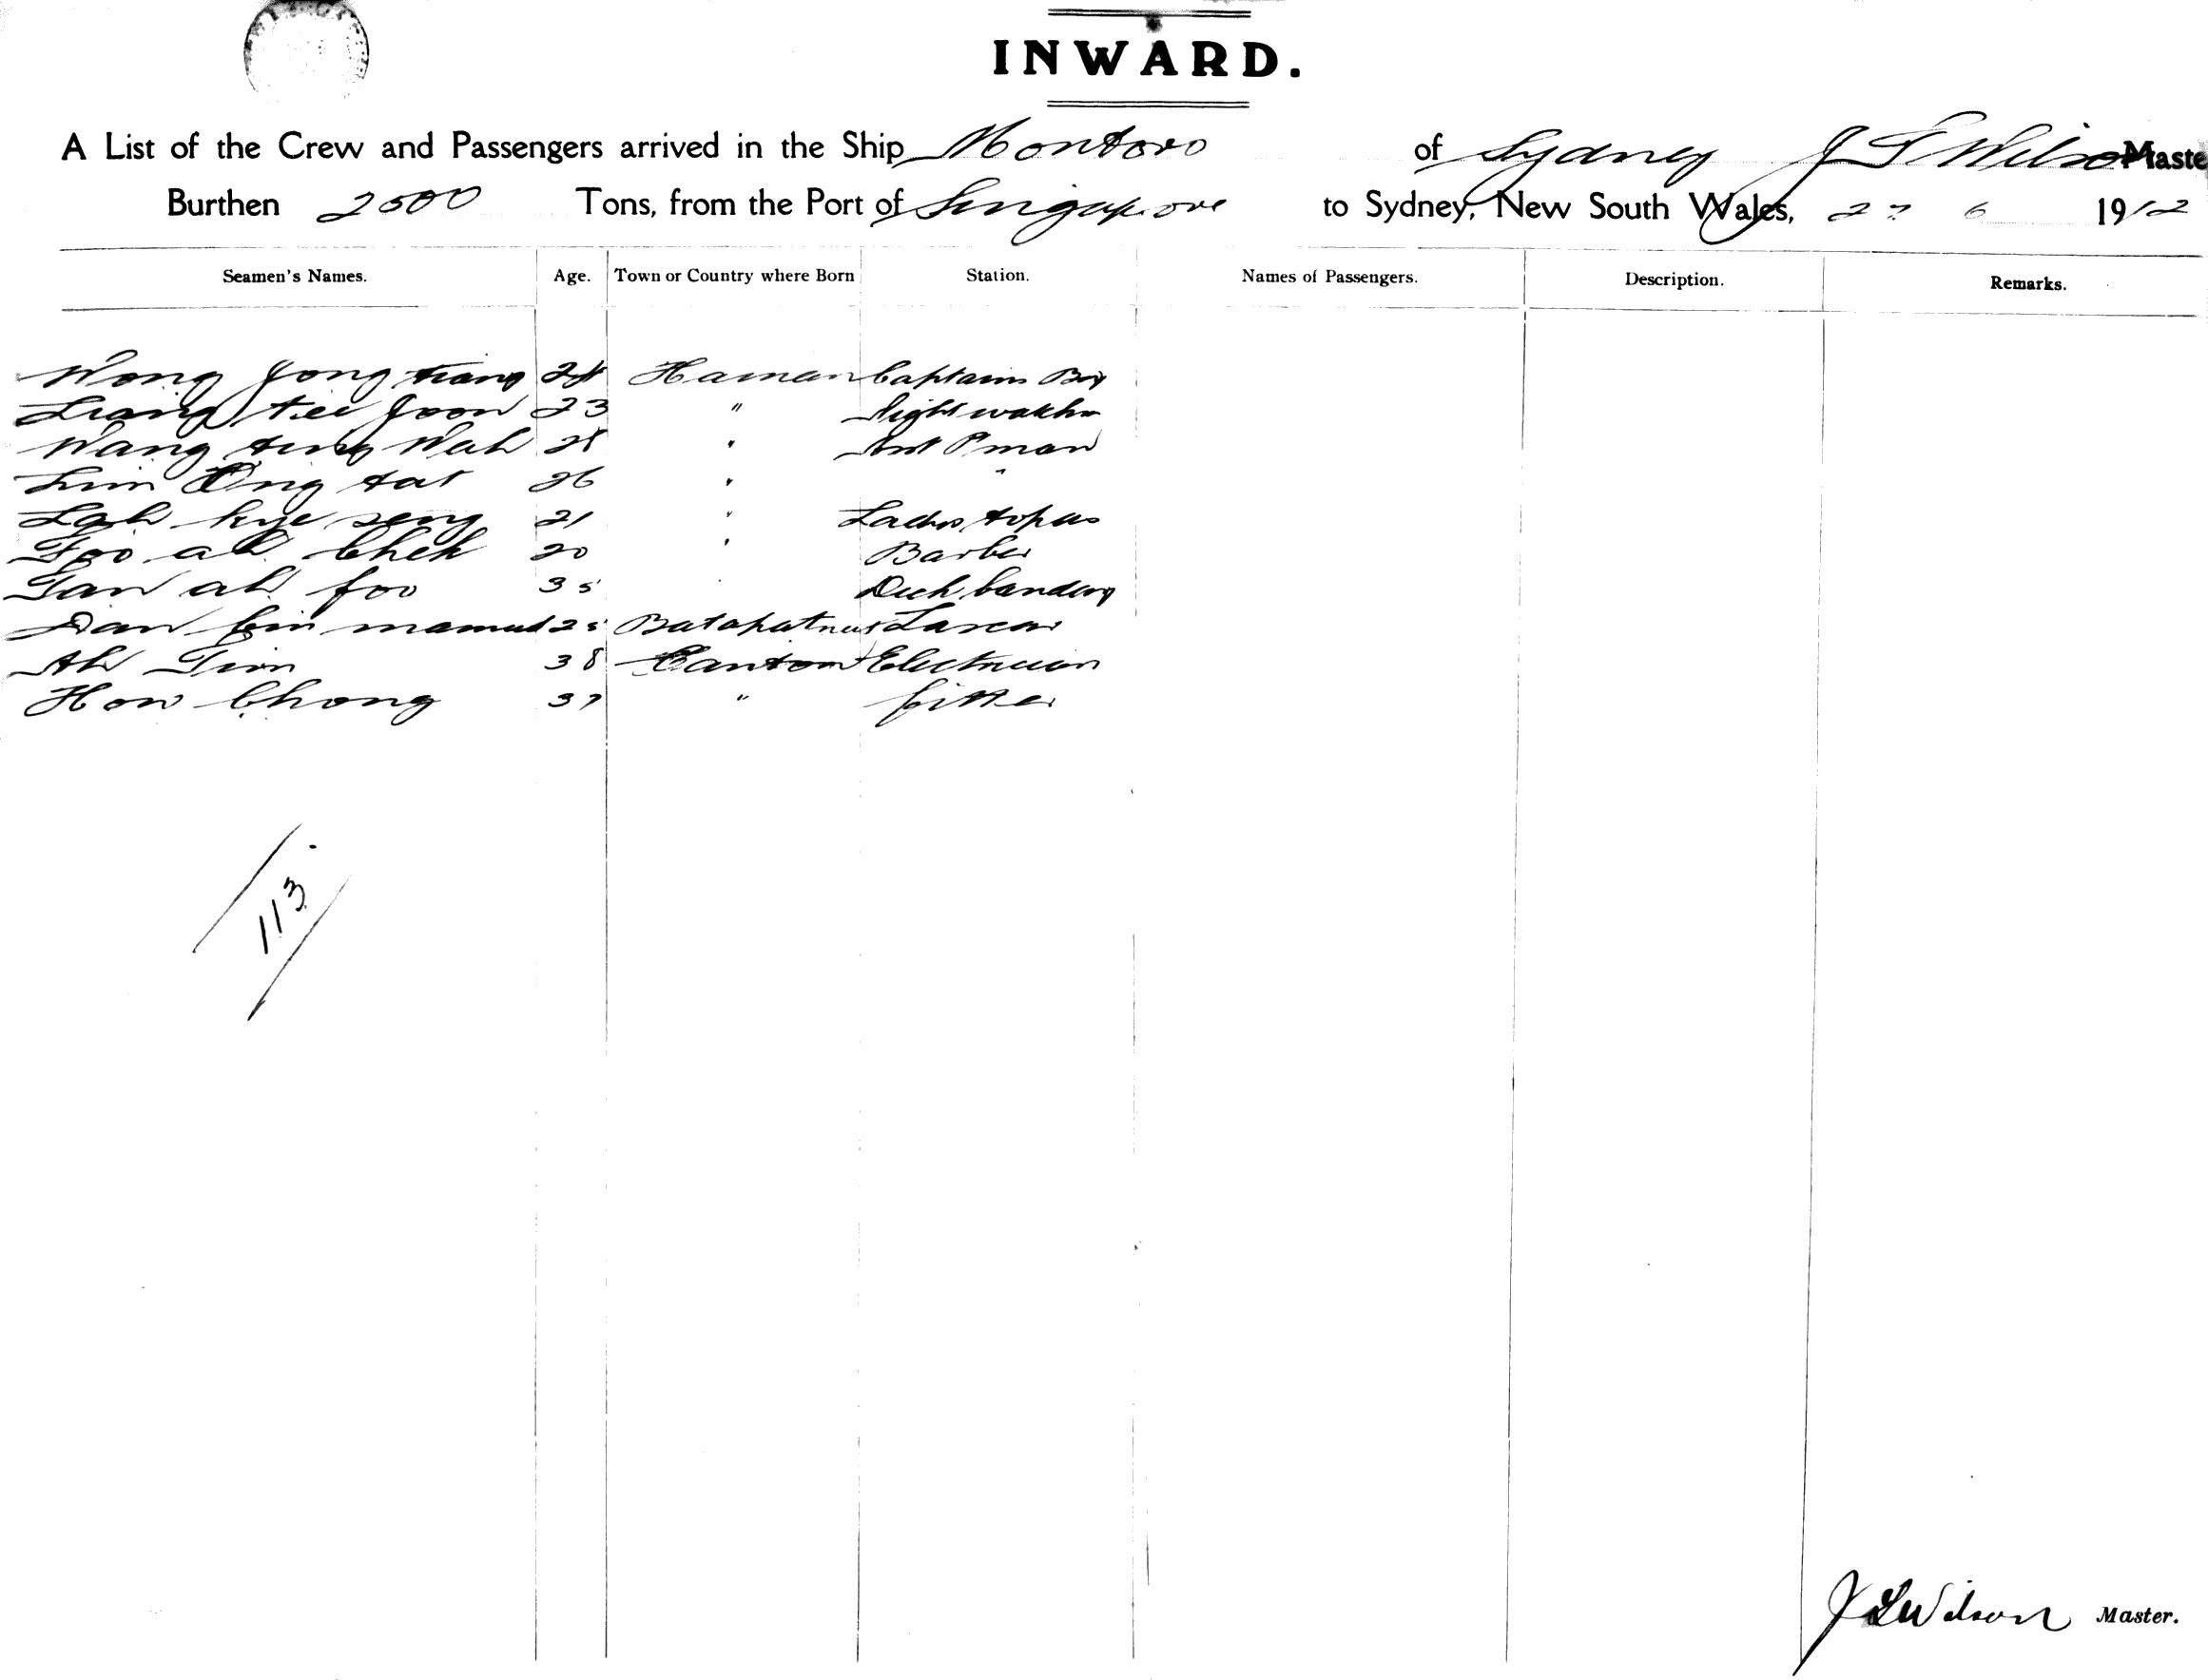 INWARD.
A List of the Crew and Passengers arrived in the Ship Montoro of Sydney J L Wilson Maste
Burthen 2500 Tons, from the Port of Singapore to Sydney, New South Wales, 27 6 1912
Seamen's Names. Age. Town or Country where Born Station. Names of Passengers. Description. Remarks.
Wong fong 24 Hainan Captains Boy
tee foon 23 " Night watchm
Wang Wah 28 " Pman
Lim Ong tat 26 " "
Lah kye seng 21 " topas
Foo ah Chek 20 " Barber
Tan ah foo 35 "
bin mamud 25 Lascar
Ah Tim 38 Canton Electrician
How Chong 37 " fitter
113
J L Wilson Master.